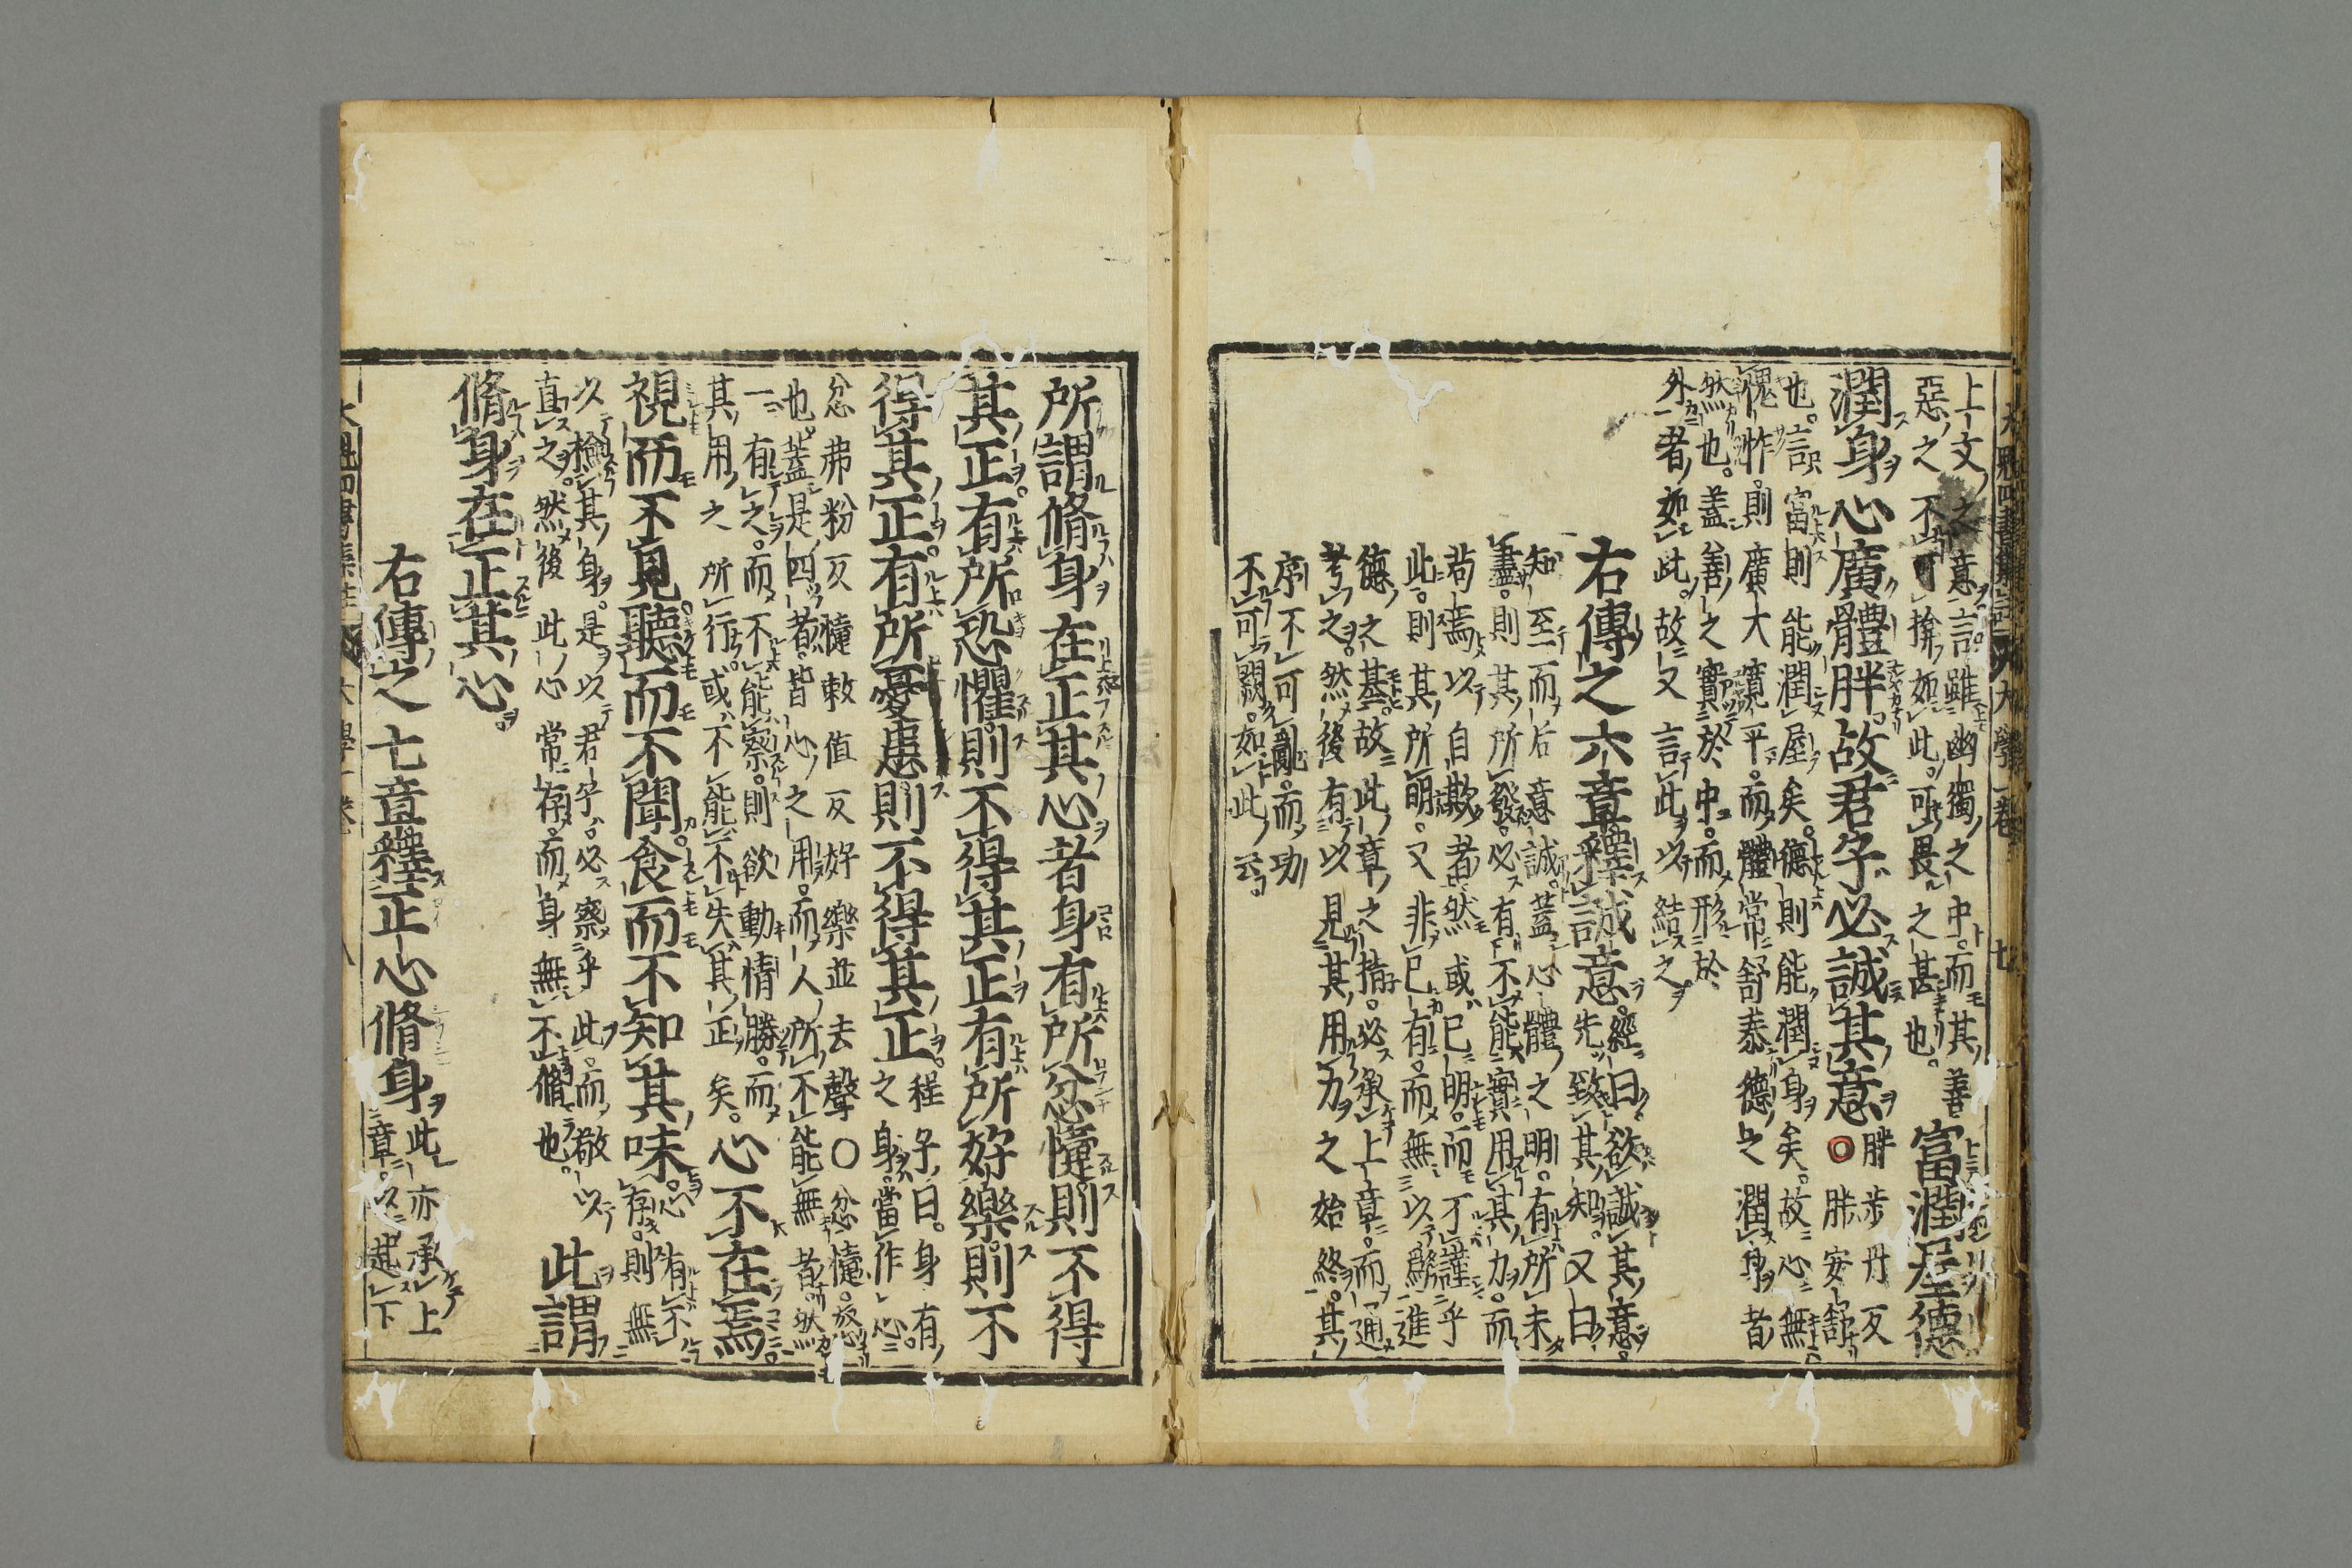 大學一卷 七
上文之意言雖幽獨之中而其善
惡之不可揜如此可畏之甚也 富潤屋德
潤身心廣體胖故君子必誠其意○胖步丹反
胖安舒
也言富則能潤屋矣德則能潤身矣故心無
愧怍則廣大寬平而體常舒泰德之潤身者
然也蓋善之實於中而形於
外者如此故又言此以結之
右傳之六章釋誠意經曰欲誠其意
先致其知又曰
知至而后意誠蓋心體之明有所未
盡則其所發必有不能實用其力而
苟焉以自欺者然或已明而不謹乎
此則其所明又非已有而無以爲進
德之基故此章之指必承上章而通
考之然後有以見其用力之始終其
序不可亂而功
不可闕如此云
所謂脩身在正其心者身有所忿懥則不得
其正有所恐懼則不得其正有所好樂則不
得其正有所憂患則不得其正 程子曰身有
之身當作心
忿弗粉反懥敕值反好樂並去聲○忿懥怒
也蓋是四者皆心之用而人所不能無者然
一有之而不能察則欲動情勝而
其用之所行或不能不失其正矣 心不在焉
視而不見聽而不聞食而不知其味 心有不
存則無
以檢其身是以君子必察乎此而敬以
直之然後此心常存而身無不脩也 此謂
脩身在正其心
右傳之七章釋正心脩身 此亦承上
章以起下